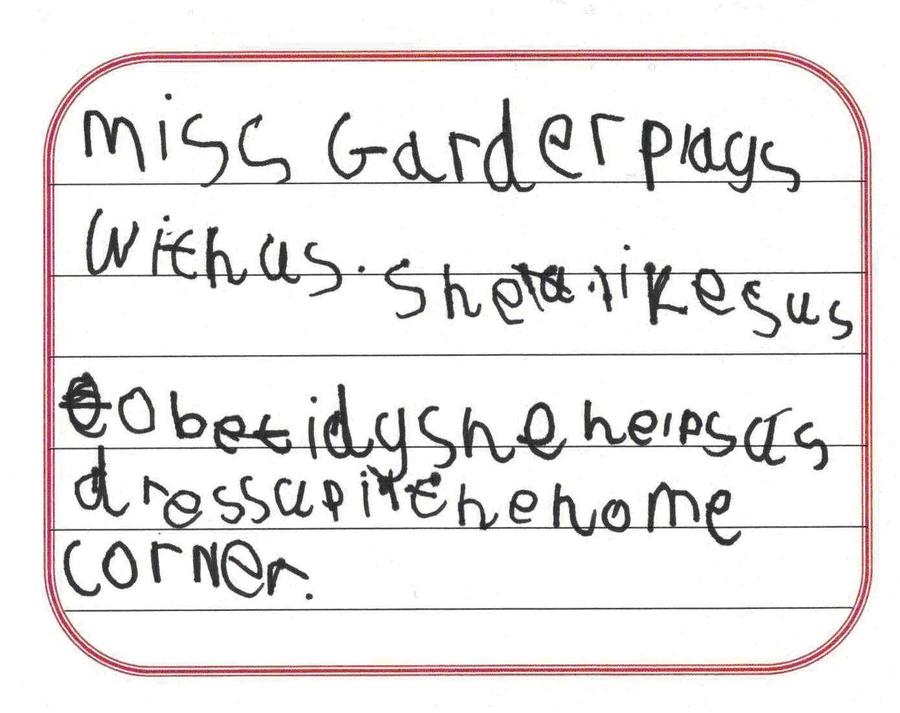 miss Garder plays
with us. she likes us
to be tidy she helps us
dress up in the home
corner.